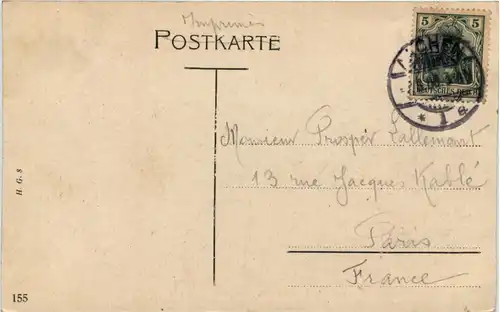 Imprimés
POSTKARTE
5 5
DEUTSCHES REICH
Monsieur Prosper Lallemant
13 rue Jacques Kablé
Paris
France
H. G. 8
155